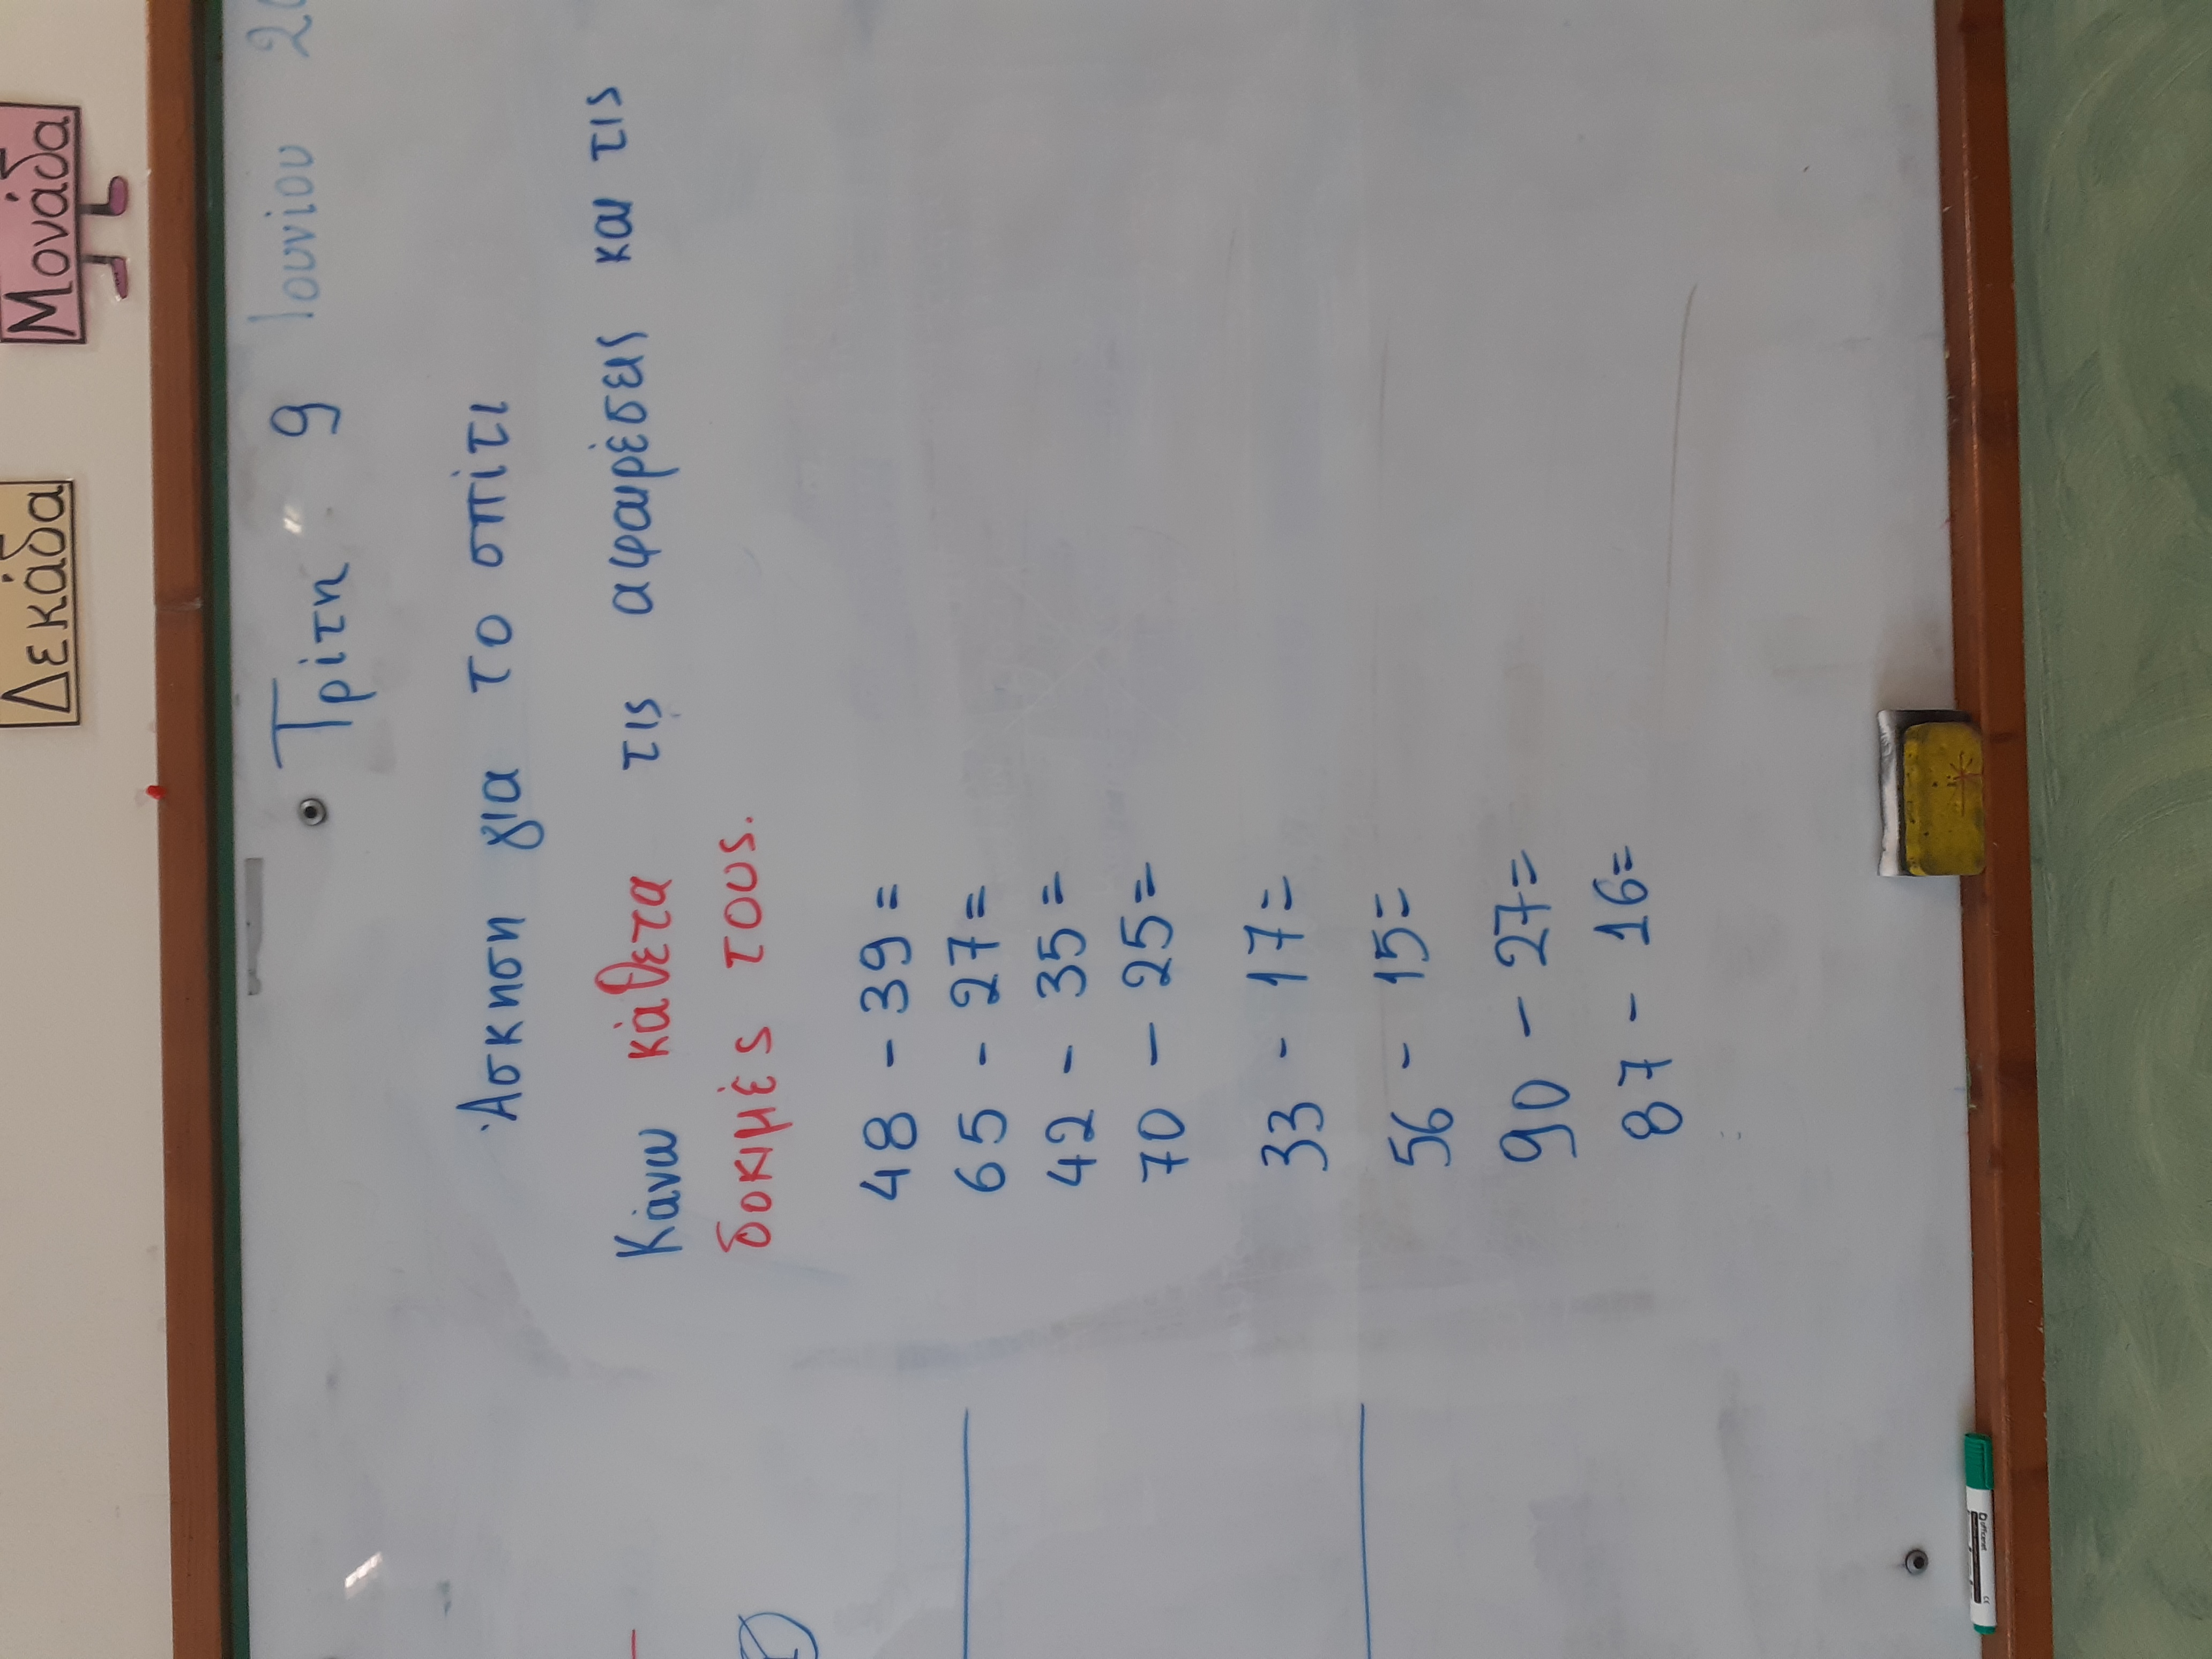 Δεκάδα Μονάδα
Τρίτη 9 Ιουνίου
Άσκηση για το σπίτι
Κάνω κάθετα τις αφαιρέσεις και τις
δοκιμές τους.
48 - 39 =
65 - 27 =
42 - 35 =
70 - 25 =
33 - 17 =
56 - 15 =
90 - 27 =
87 - 16 =